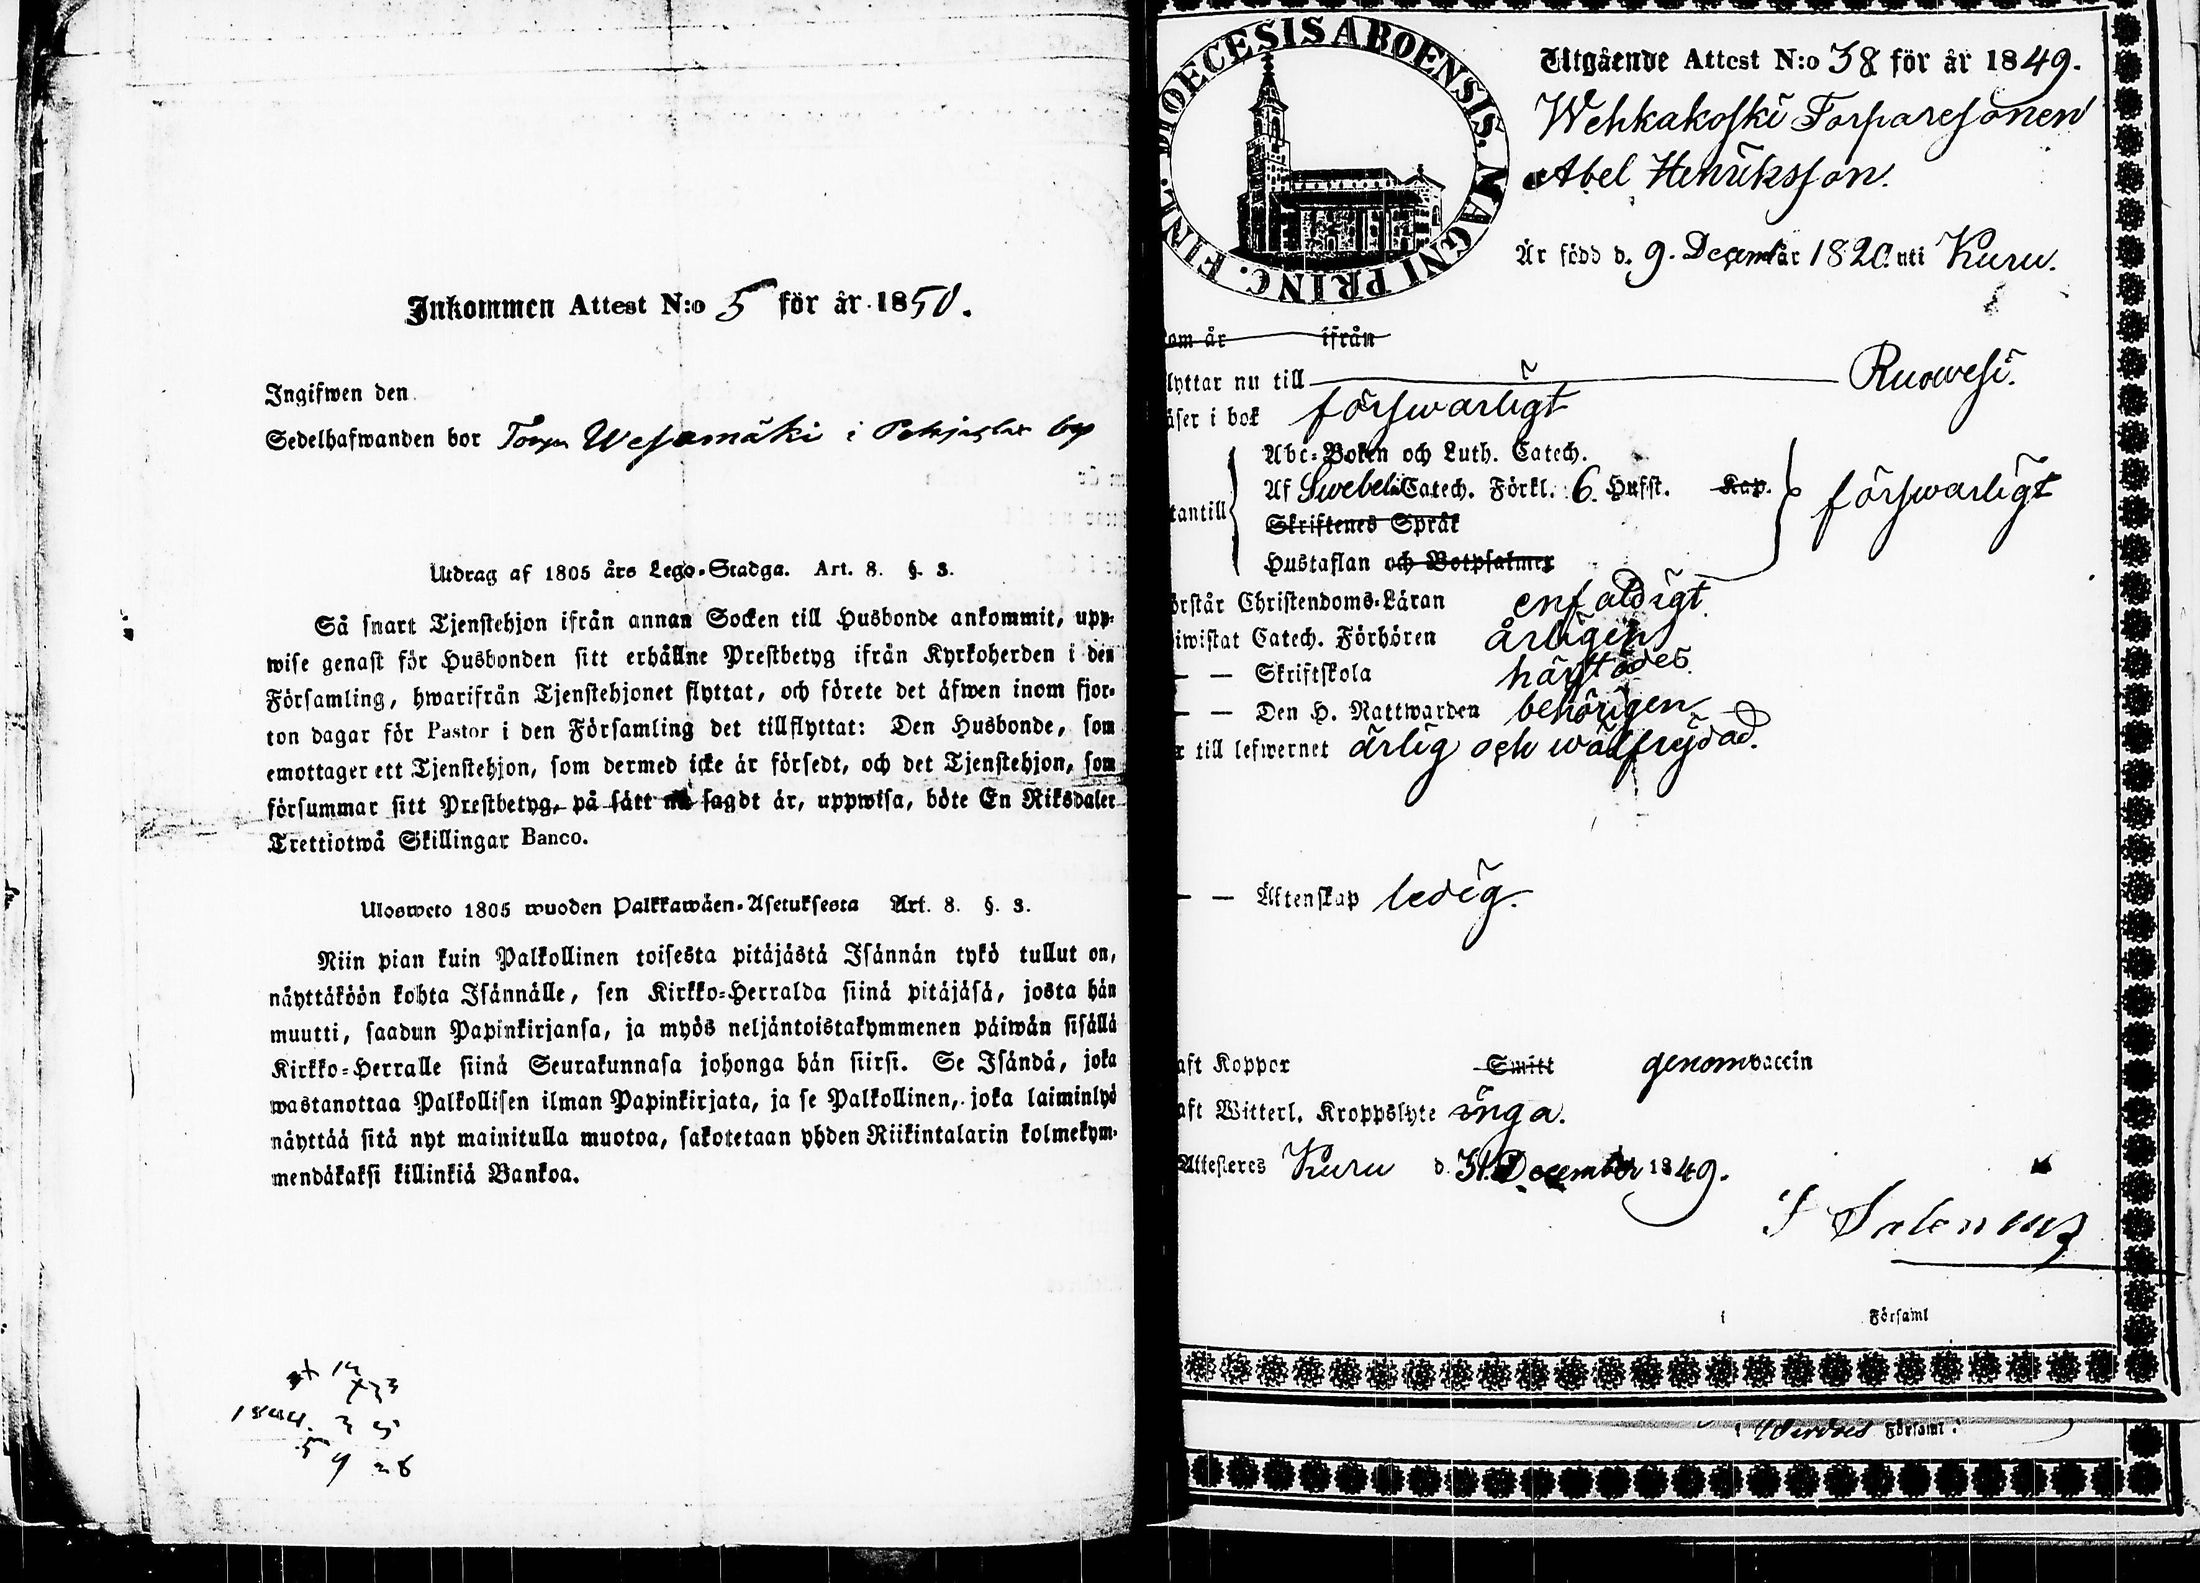 Inkommen Attest N:o 5 för år 1850.
Ingifwen den
Sedelhafwanden bor Torp Wesamäki i by
Utdrag af 1805 års Lego-Stadga. Art. 8. §. 3.
Så snart Tjenstehjon ifrån annan Socken till Husbonde ankommit, upp-
wise genast för Husbonden sitt erhållne Prestbetyg ifrån Kyrkoherden i den
Församling, hwarifrån Tjenstehjonet flyttat, och förete det äfwen inom fjor-
ton dagar för Pastor i den Församling det tillflyttat: Den Husbonde, som
emottager ett Tjenstehjon, som dermed icke är försedt, och det Tjenstehjon, som
försummar sitt Prestbetyg, på sätt nu sagdt är, uppwisa, böte En Riksdaler
Trettiotwå Skillingar Banco.
Ulosweto 1805 wuoden Palkkawäen-Asetuksesta Art. 8. §. 3.
Niin pian kuin Palkollinen toisesta pitäjästä Isännän tykö tullut on,
näyttäköön kohta Isännälle, sen Kirkko-Herralda siinä pitäjäsä, josta hän
muutti, saadun Papinkirjansa, ja myös neljäntoistakymmenen päiwän sisällä
Kirkko-Herralle siinä Seurakunnasa johonga hän siirsi. Se Isändä, joka
wastanottaa Palkollisen ilman Papinkirjata, ja se Palkollinen, joka laiminlyö
näyttää sitä nyt mainitulla muotoa, sakotetaan yhden Riikintalarin kolmekym-
mendäkaksi killinkiä Bankoa.
1844. 3 5
5 9 28
DIOECESIS ABOENSIS. MAGNI PRINC. FINL.
Utgående Attest N:o 38 för år 1849.
Wehkakoski Torparesonen
Abel Henriksson.
Är född d. 9. December 1820. uti Kuru.
om år ifrån
lyttar nu till Ruowesi.
äser i bok förswarligt
Abc-Boken och Luth. Catech.
Af Swebeli Catech. Förkl. 6. Hufst. Kap. förswarligt
tantill
Skriftenes Språk
Hustaflan och Botpsalmer
örstår Christendoms-Läran enfaldigt
iwistat Catech. Förhören årligen
— — Skriftskola härstädes
— — Den H. Nattwarden behörigen
r till lefwernet ärlig och wälfrejdad.
— — Äktenskap ledig.
aft Koppor Smitt genom vaccin
aft Witterl. Kroppslyte inga.
Attesteres Kuru d. 31. December 1849.
i Församl
i Församl: